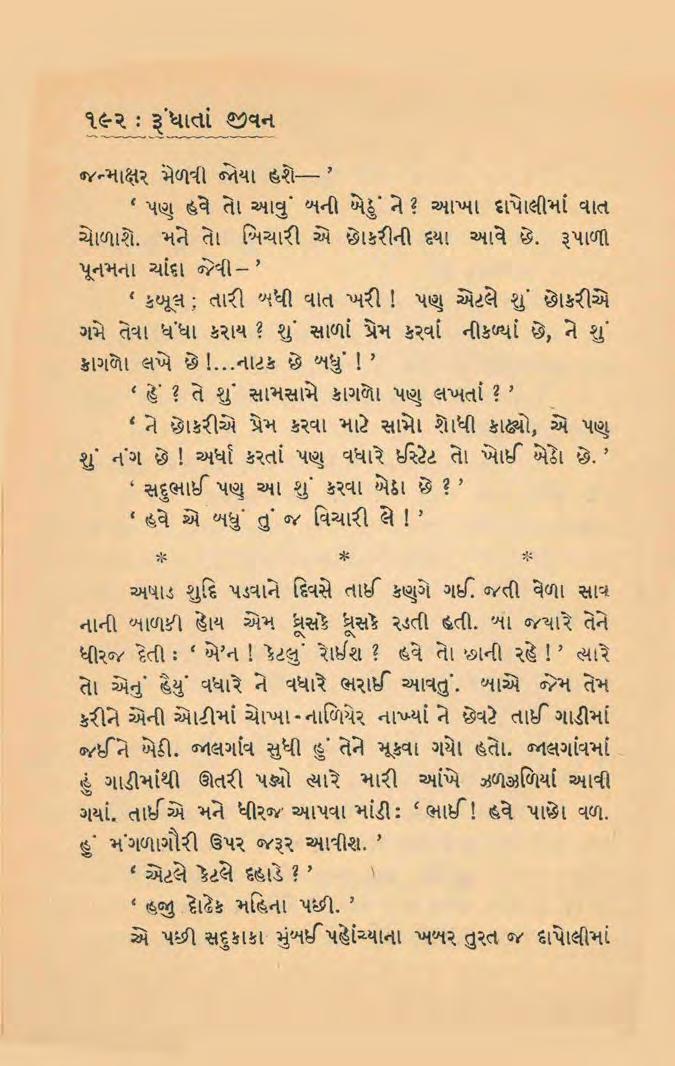 ૧૯૨ : રૂંધાતાં જીવન
જન્માક્ષર મેળવી જોયા હશે— ’
‘ પણ હવે તો આવું બની બેઠું ને ? આખા દાપોલીમાં વાત
ચોળાશે. મને તો બિચારી એ છોકરીની દયા આવે છે. રૂપાળી
પૂનમના ચાંદા જેવી – ’
‘ કબૂલ ; તારી બધી વાત ખરી ! પણ એટલે શું છોકરીએ
ગમે તેવા ધંધા કરાય ? શું સાળાં પ્રેમ કરવાં નીકળ્યાં છે, ને શું
કાગળો લખે છે !...નાટક છે બધું ! ’
‘ હેં ? તે શું સામસામે કાગળો પણ લખતાં ? ’
‘ ને છોકરીએ પ્રેમ કરવા માટે સામો શોધી કાઢ્યો, એ પણ
શું નંગ છે ! અર્ધા કરતાં પણ વધારે ઈસ્ટેટ તો ખોઈ બેઠો છે. ’
‘ સદુભાઈ પણ આ શું કરવા બેઠા છે ? ’
‘ હવે એ બધું તું જ વિચારી લે ! ’
* * *
અષાડ શુદિ પડવાને દિવસે તાઈ કણગે ગઈ. જતી વેળા સાવ
નાની બાળકી હોય એમ ધ્રૂસકે ધ્રૂસકે રડતી હતી. બા જ્યારે તેને
ધીરજ દેતી : ‘ બે'ન ! કેટલું રોઈશ ? હવે તો છાની રહે ! ’ ત્યારે
તો એનું હૈયું વધારે ને વધારે ભરાઈ આવતું. બાએ જેમ તેમ
કરીને એની ઓટીમાં ચોખા - નાળિયેર નાખ્યાં ને છેવટે તાઈ ગાડીમાં
જઈને બેઠી. જાલગાંવ સુધી હું તેને મૂકવા ગયો હતો. જાલગાંવમાં
હું ગાડીમાંથી ઊતરી પડ્યો ત્યારે મારી આંખે ઝળઝળિયાં આવી
ગયાં. તાઈએ મને ધીરજ આપવા માંડી : ‘ ભાઈ ! હવે પાછો વળ.
હું મંગળાગૌરી ઉપર જરૂર આવીશ. ’
‘ એટલે કેટલે દહાડે ? ’
‘ હજી દોઢેક મહિના પછી. ’
એ પછી સદુકાકા મુંબઈ પહોંચ્યાના ખબર તુરત જ દાપોલીમાં